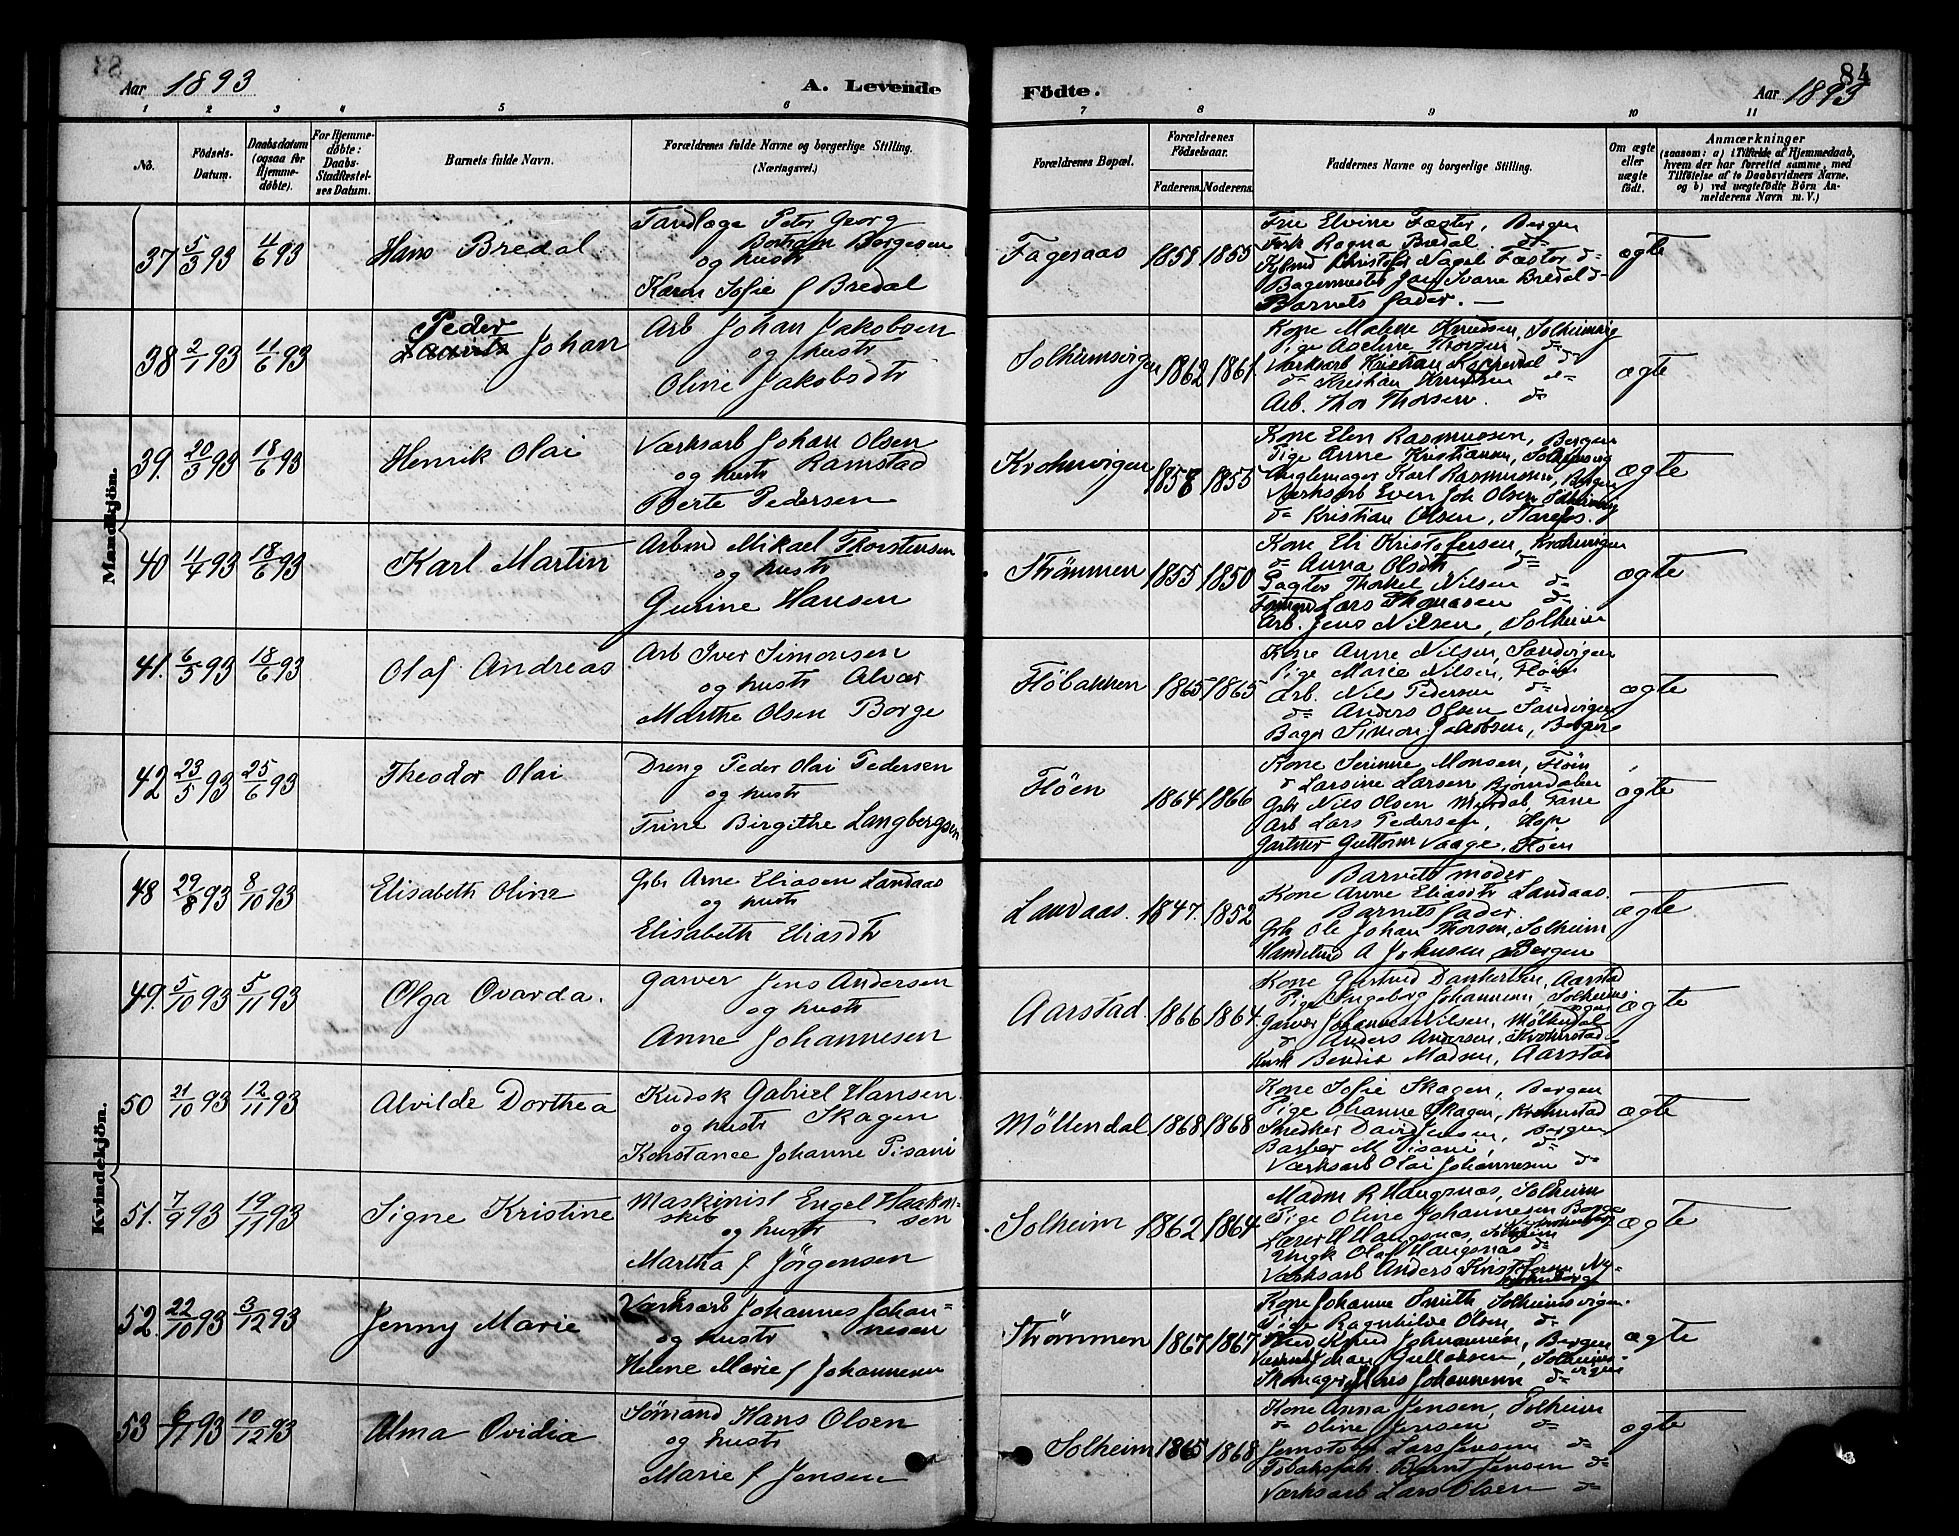 Aar 1893
A. Levende
Födte.
Aar 1893
84
1 2 3 4 5 6 7 8 9 10 11
No.
Födsels-Datum.
Daabsdatum (ogsaa for Hjemme-döbte).
For Hjemme-döbte: Daabs-Stadfæstel-ses Datum.
Barnets fulde Navn.
Forældrenes fulde Navne og borgerlige Stilling.
(Næringsvei.)
Forældrenes Bopæl.
Forældrenes Födselsaar.
Faderens. Moderens.
Faddernes Navne og borgerlige Stilling.
Om ægte eller uægte födt.
Anmærkninger
(saasom: a) i Tilfælde af Hjemmedaab,
hvem der har forrettet samme, med
Tilföielse af to Daabsvidners Navne,
og b) ved uægtefödte Börn An-
melderens Navn m. V.)
Mandkjön.
37 5/3 93 4/6 93 Hans Bredal
Tandlæge Peter Georg
Borgesen
og hustr
Karen Sofie f Bredal
Fageraas 1858 1855
Frue Elvine Faster, Bergen
Frk Ragna Bredal do
Christofer Nagel Faster do
Bagermester Jan Svane Bredal do
Barnets fader. —
ægte
38 2/1 93 11/6 93 Peder Johan
Arb Johan Jakobsen
og hustr
Oline Jakobsdtr
Solheimsvigen 1862 1861
Kone Malene Knudsen, Solheimsvig
Pige Thorsen do
Værksarb Kristian do
do Kristian Knudsen do
Arb. Thor Thorsen. do
ægte
39. 20/3 93 18/6 93 Henrik Olai
Værksarb Johan Olsen
og hustr Ramstad
Berte Pedersen
Krohnvigen 1858 1855
Kone Elen Rasmussen, Bergen
Pige Anne Kristiansen, Solheimsvig
Karl Rasmussen, Bergen
Værksarb Even Joh Olsen Solheimsvig
do Kristian Olsen,
ægte
40 4/4 93 18/6 93 Karl Martin
Arbmd Mikael Thorstensen
og hustr
Gurine Hansen
Strømmen 1855 1850
Kone Eli Kristofersen, Krohnvigen
do Anna Olsdtr do
Pagter Thorkel Nilsen do
Formand Lars Thomasen do
Arb. Jens Nilsen, Solheim
ægte
41. 6/5 93 18/6 93 Olaf Andreas
Arb Iver Simonsen
og hustr Alvær
Marthe Olsen Borge
Fløbakken 1865 1865
Kone Anne Nilsen, Sandvigen
Pige Marie Nilsen, Fløen
Arb. Nils Pedersen do
do Anders Olsen Sandvigen
Bager Simon Jakobsen, Bergen
ægte
42 23/5 93 25/6 93 Theodor Olai
Dreng Peder Olai Pedersen
og hustr
Trine Birgithe Langbergsen
Fløen 1864 1866
Kone Serine Monsen, Fløen
do Larsine Larsen Bjørndalen
Gbr Nils Olsen Myrdal, Fane
Arb Lars Pedersen, Hop
Gartner Guttorm Vaage, Fløen
ægte
Kvindekjön.
48 29/8 93 8/10 93 Elisabeth Oline
Gbr Arne Eliasen Landaas
og hustr
Elisabeth Eliasdtr
Landaas. 1847. 1852
Barnets moder
Kone Anne Eliasdtr Landaas.
Barnets fader.
Gbr Ole Johan Thorsen, Solheim
A Johnsen, Bergen
ægte
49. 5/10 93 5/11 93 Olga Ovarda.
Garver Jens Andersen
og hustr
Anne Johannesen
Aarstad. 1866 1864.
Kone Gurtrud Dankertsen, Aarstad
Pige Ingeborg Johannesen, Solheimsvigen
Garver Johannes Nilsen, Møllendal
do Anders Andersen, Krohnstad
Kusk Bendix Madsen, Aarstad
ægte
50 21/10 93 12/11 93 Alvilde Dorthea
Kudsk Gabriel Hansen
og hustr Skagen
Konstance Johanne Pisani
Møllendal 1868. 1868
Kone Sofie Skagen, Bergen
Pige Ohanne Skagen, Krohnstad
Snedker David Jensen, Bergen
Barber M Pisani, do
Værksarb Olai Johannesen do
ægte
51. 7/9 93 19/11 93 Signe Kristine
Maskinist Engel Haakon-
skib sen
og hustr
Martha f Jørgensen
Solheim 1862 1864
Madm R Haugsnæs, Solheim
Pige Oline Johannesen
Lærer H Haugsnæs, Solheim
Ungk Olaf Haugsnæs do
Værksarb Anders Kristofersen Ny-
krohnborg
ægte
52. 22/10 93 3/12 93 Jenny Marie
Værksarb Johannes Johan-
og hustr nesen
Helene Marie f Johannesen
Strømmen 1867 1867
Kone Johanne Smith, Solheimsvigen.
Pige Ragnhilde Olsen, do
Knud Johannesen, Bergen
Gullaksen, Solheims-
vigen
Skomager Johannesen do
ægte
53 6/11 93 10/12 93 Alma Ovidia
Sømand Hans Olsen
og hustr
Marie f Jensen
Solheim 1865 1868
Kone Anna Jensen, Solheim
do Oline Jensen do
Jernstøber Lars Jensen do
Tobaksfabr. Bernt Jensen do
Værksarb Lars Olsen do
ægte